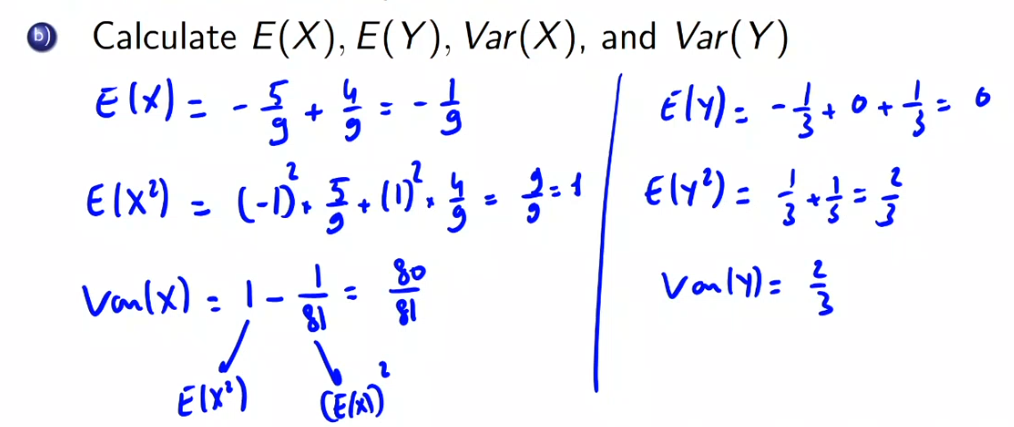 b) Calculate E(X), E(Y), Var(X), and Var(Y)
E(X) = - 5/9 + 4/9 = - 1/9
E(X²) = (-1)². 5/9 + (1)². 4/9 = 9/9 = 1
Var(X) = 1 - 1/81 = 80/81
E(X²) (E(X))²
E(Y) = - 1/3 + 0 + 1/3 = 0
E(Y²) = 1/3 + 1/3 = 2/3
Var(Y) = 2/3